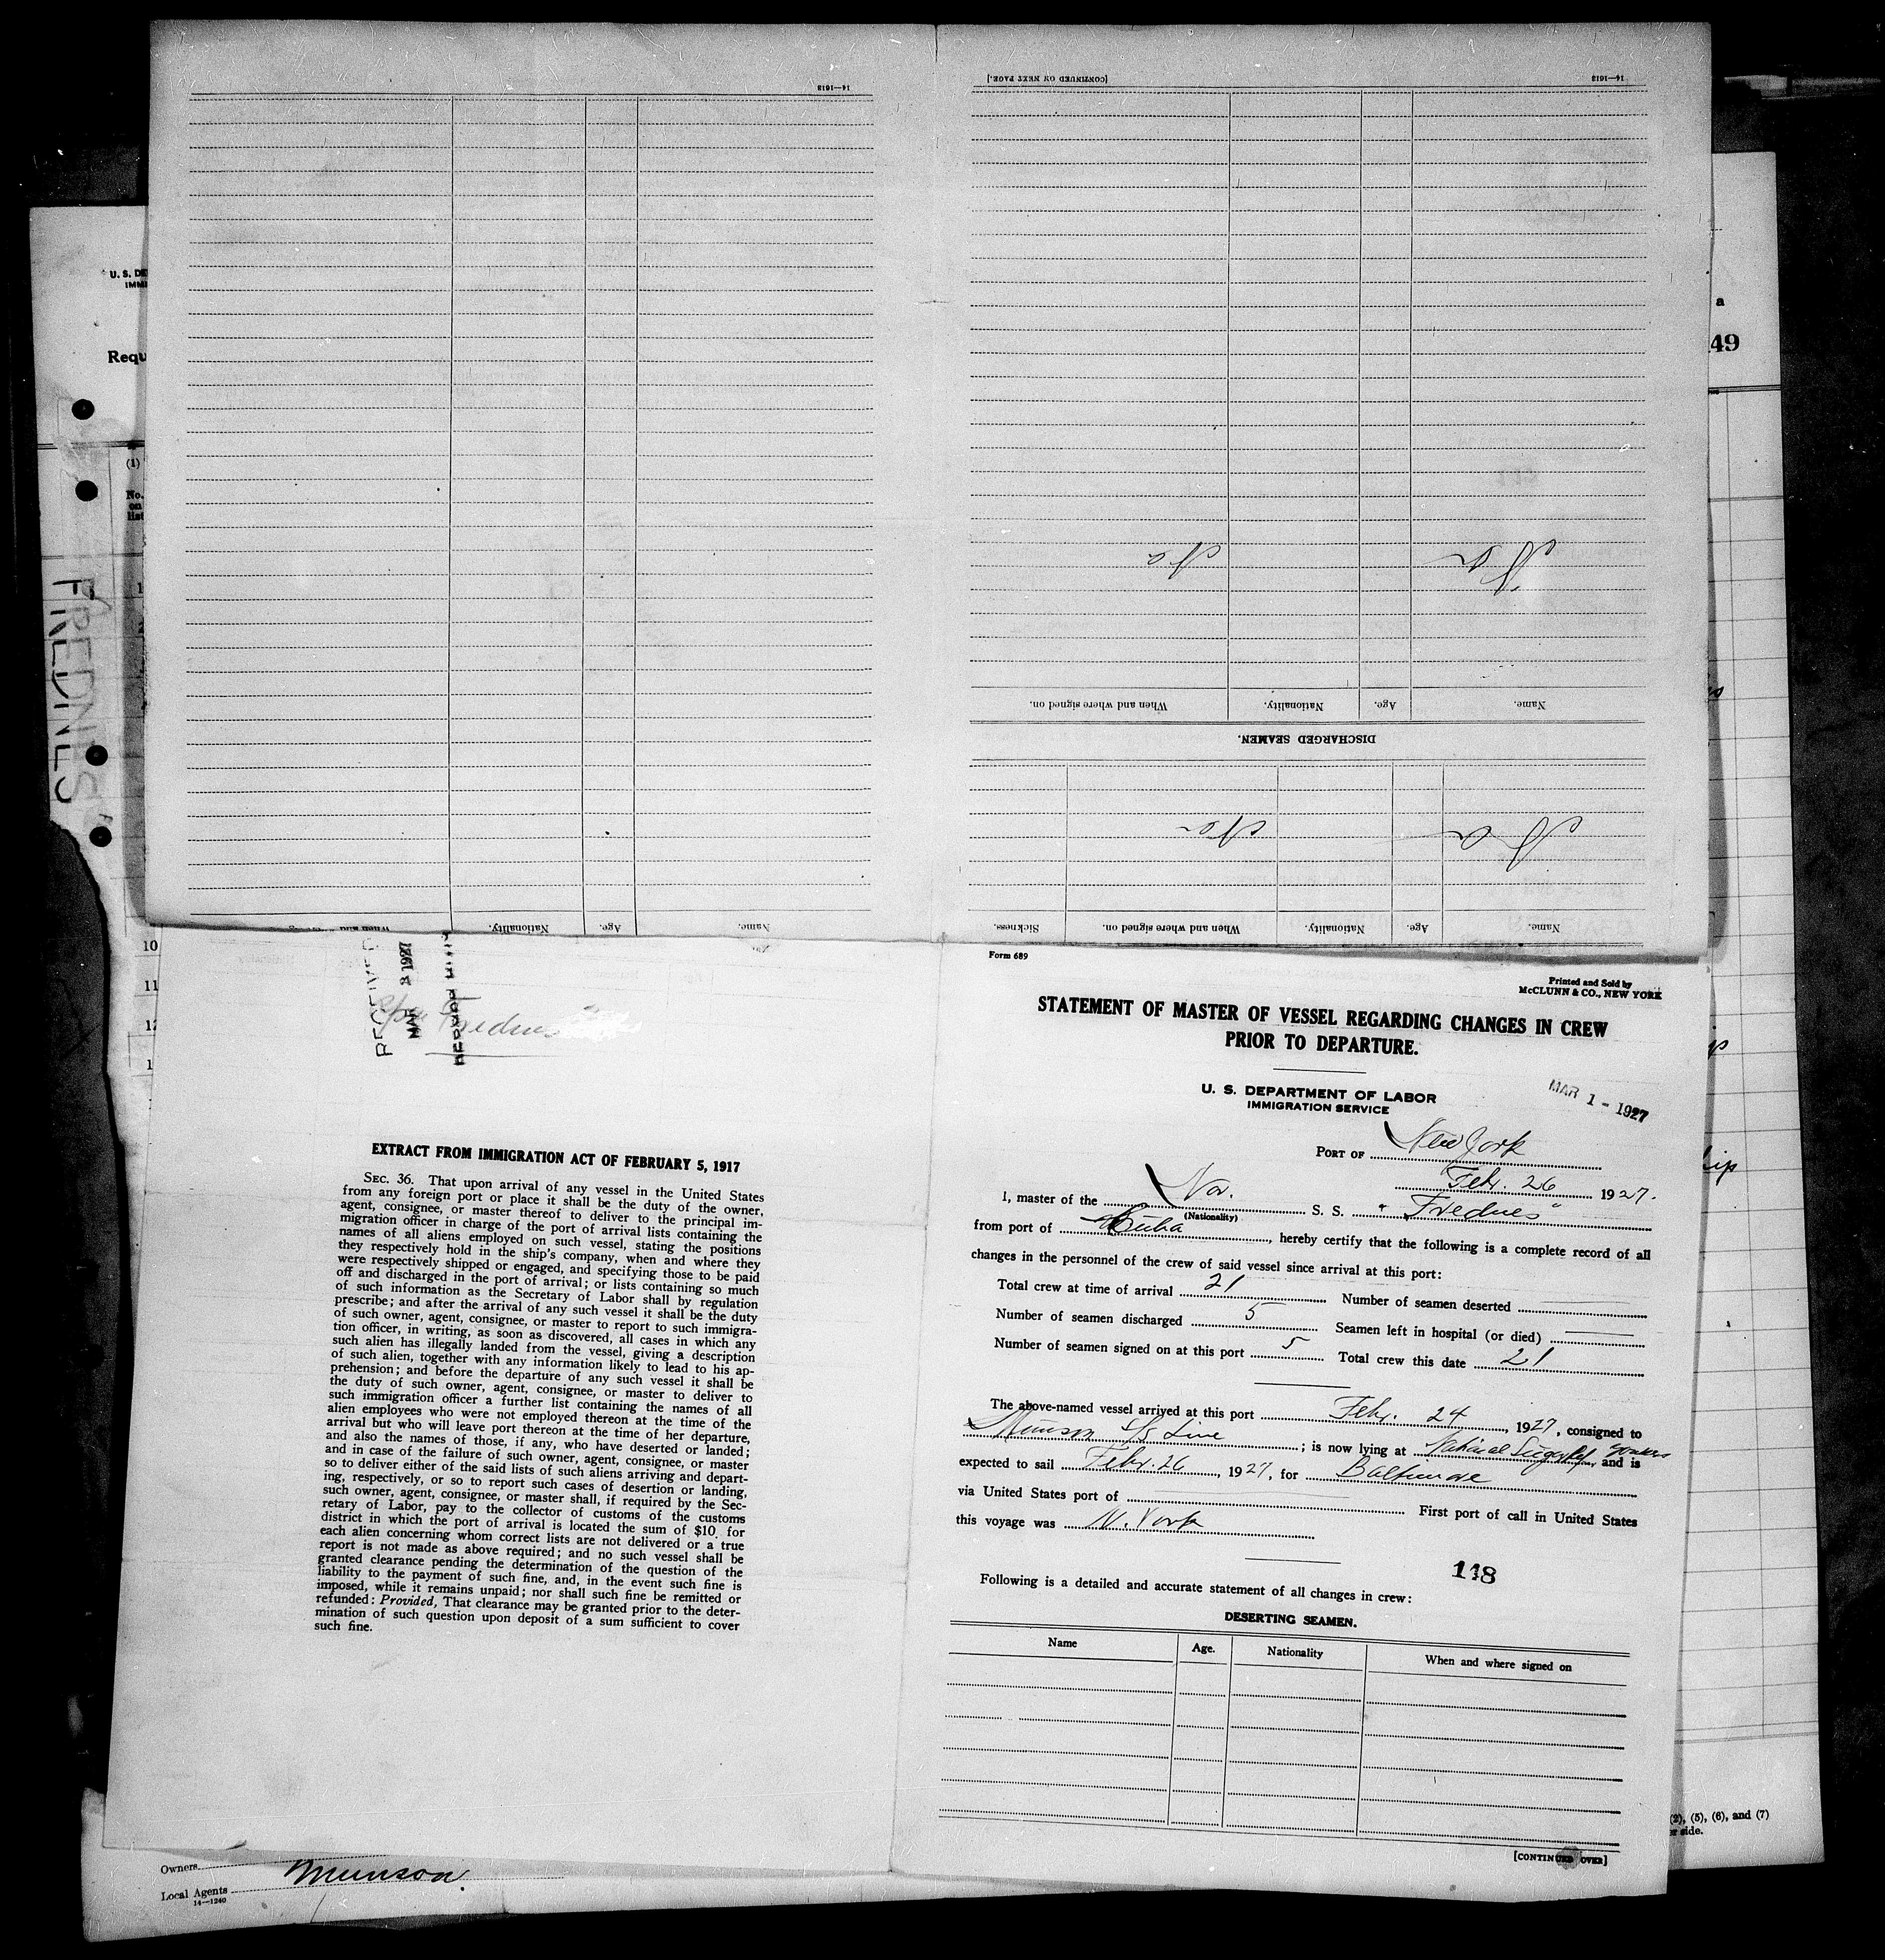 14—1613
[CONTINUED ON NEXT PAGE.]
14—1613
Name.
Age.
Nationality.
When and where signed on.
DISCHARGED SEAMEN.
Name.
Age.
Nationality.
When and where signed on.
Sickness.
Name.
Age.
Nationality.
U. S. DE
IMMI
Requ
(1)
No.
on
list
FREDNES
FREDNES
a
49
10
11
RECEIVED
MAR 3 1927
Frednes
EXTRACT FROM IMMIGRATION ACT OF FEBRUARY 5, 1917
SEC. 36. That upon arrival of any vessel in the United States
from any foreign port or place it shall be the duty of the owner,
agent, consignee, or master thereof to deliver to the principal im-
migration officer in charge of the port of arrival lists containing the
names of all aliens employed on such vessel, stating the positions
they respectively hold in the ship's company, when and where they
were respectively shipped or engaged, and specifying those to be paid
off and discharged in the port of arrival; or lists containing so much
of such information as the Secretary of Labor shall by regulation
prescribe; and after the arrival of any such vessel it shall be the duty
of such owner, agent, consignee, or master to report to such immigra-
tion officer, in writing, as soon as discovered, all cases in which any
such alien has illegally landed from the vessel, giving a description
of such alien, together with any information likely to lead to his ap-
prehension; and before the departure of any such vessel it shall be
the duty of such owner, agent, consignee, or master to deliver to
such immigration officer a further list containing the names of all
alien employees who were not employed thereon at the time of the
arrival but who will leave port thereon at the time of her departure,
and also the names of those, if any, who have deserted or landed;
and in case of the failure of such owner, agent, consignee, or master
so to deliver either of the said lists of such aliens arriving and depart-
ing, respectively, or so to report such cases of desertion or landing,
such owner, agent, consignee, or master shall, if required by the Sec-
retary of Labor, pay to the collector of customs of the customs
district in which the port of arrival is located the sum of $10 for
each alien concerning whom correct lists are not delivered or a true
report is not made as above required; and no such vessel shall be
granted clearance pending the determination of the question of the
liability to the payment of such fine, and, in the event such fine is
imposed, while it remains unpaid; nor shall such fine be remitted or
refunded: Provided, That clearance may be granted prior to the deter-
mination of such question upon deposit of a sum sufficient to cover
such fine.
Form 689
Printed and Sold by
McCLUNN & CO., NEW YORK
STATEMENT OF MASTER OF VESSEL REGARDING CHANGES IN CREW
PRIOR TO DEPARTURE.
U. S. DEPARTMENT OF LABOR
IMMIGRATION SERVICE
MAR 1 - 1927
PORT OF New York
Febr. 26 1927.
I, master of the Nor. S. S. "Frednes"
(Nationality)
from port of Cuba, hereby certify that the following is a complete record of all
changes in the personnel of the crew of said vessel since arrival at this port:
Total crew at time of arrival 21 Number of seamen deserted
Number of seamen discharged 5 Seamen left in hospital (or died)
Number of seamen signed on at this port 5 Total crew this date 21
The above-named vessel arrived at this port Febr. 24, 1927, consigned to
Munson S/S Line; is now lying at National Sugar Ref. Yonkers, and is
expected to sail Febr. 26, 1927, for Baltimore
via United States port of First port of call in United States
this voyage was N. York
118
Following is a detailed and accurate statement of all changes in crew:
DESERTING SEAMEN.
Name Age. Nationality When and where signed on
[CONTINUED OVER]
(2), (5), (6), and (7)
side.
Owners
Munson
Local Agents
14—1240